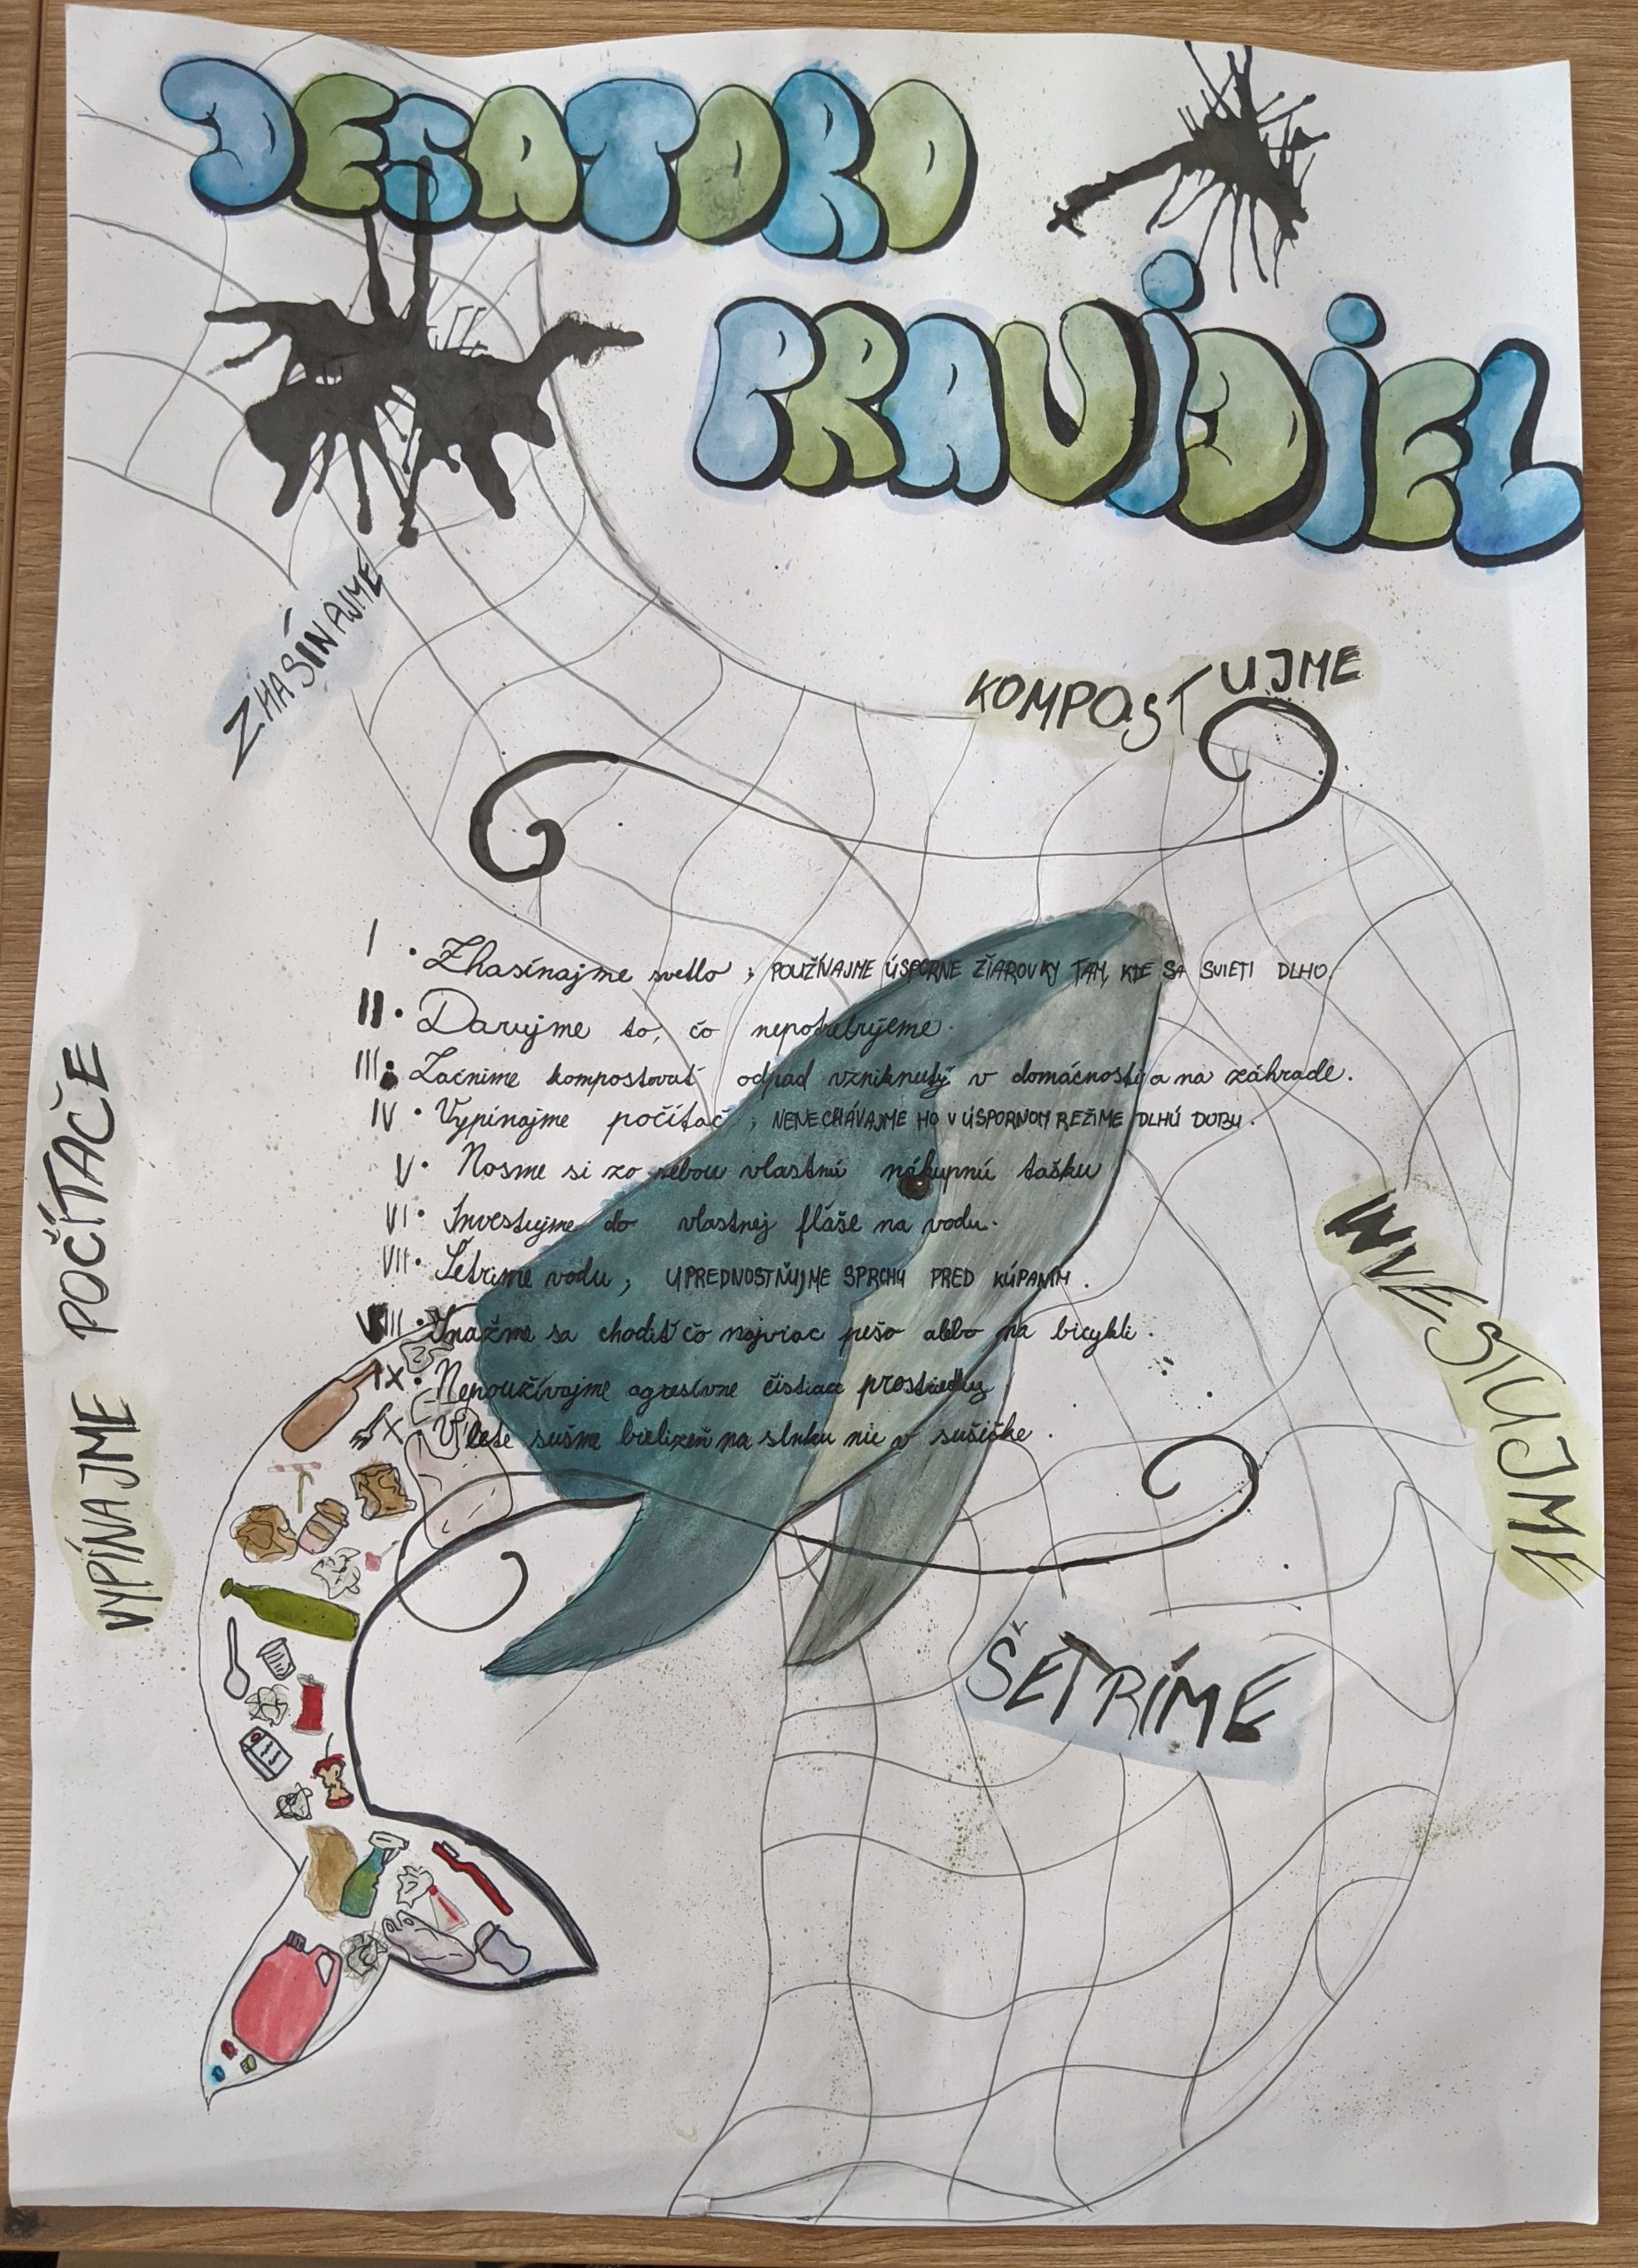 DESATORO
PRAVIDIEL
ZHASÍNAJME
KOMPOSTUJME
I. Zhasínajme svetlo, POUŽÍVAJME ÚSPORNE ŽIAROVKY TAM, KDE SA SVIETI DLHO.
II. Darujme to, čo nepotrebujeme.
III. Začnime kompostovať odpad vzniknutý v domácnosti a na záhrade.
IV. Vypínajme počítač, NENECHÁVAJME HO V ÚSPORNOM REŽIME DLHÚ DOBU.
V. Nosme si zo sebou vlastnú nákupnú tašku
VI. Investujme do vlastnej fľaše na vodu.
VII. Šetrime vodu, UPREDNOSTŇUJME SPRCHU PRED KÚPANÍM.
VIII. Snažme sa chodiť čo najviac pešo alebo na bicykli.
IX. Nepoužívajme agresívne čistiace prostriedky
X. V lete sušme bielizeň na slnku nie v sušičke.
VYPÍNAJME POČÍTAČE
INVESTUJME
ŠETRÍME